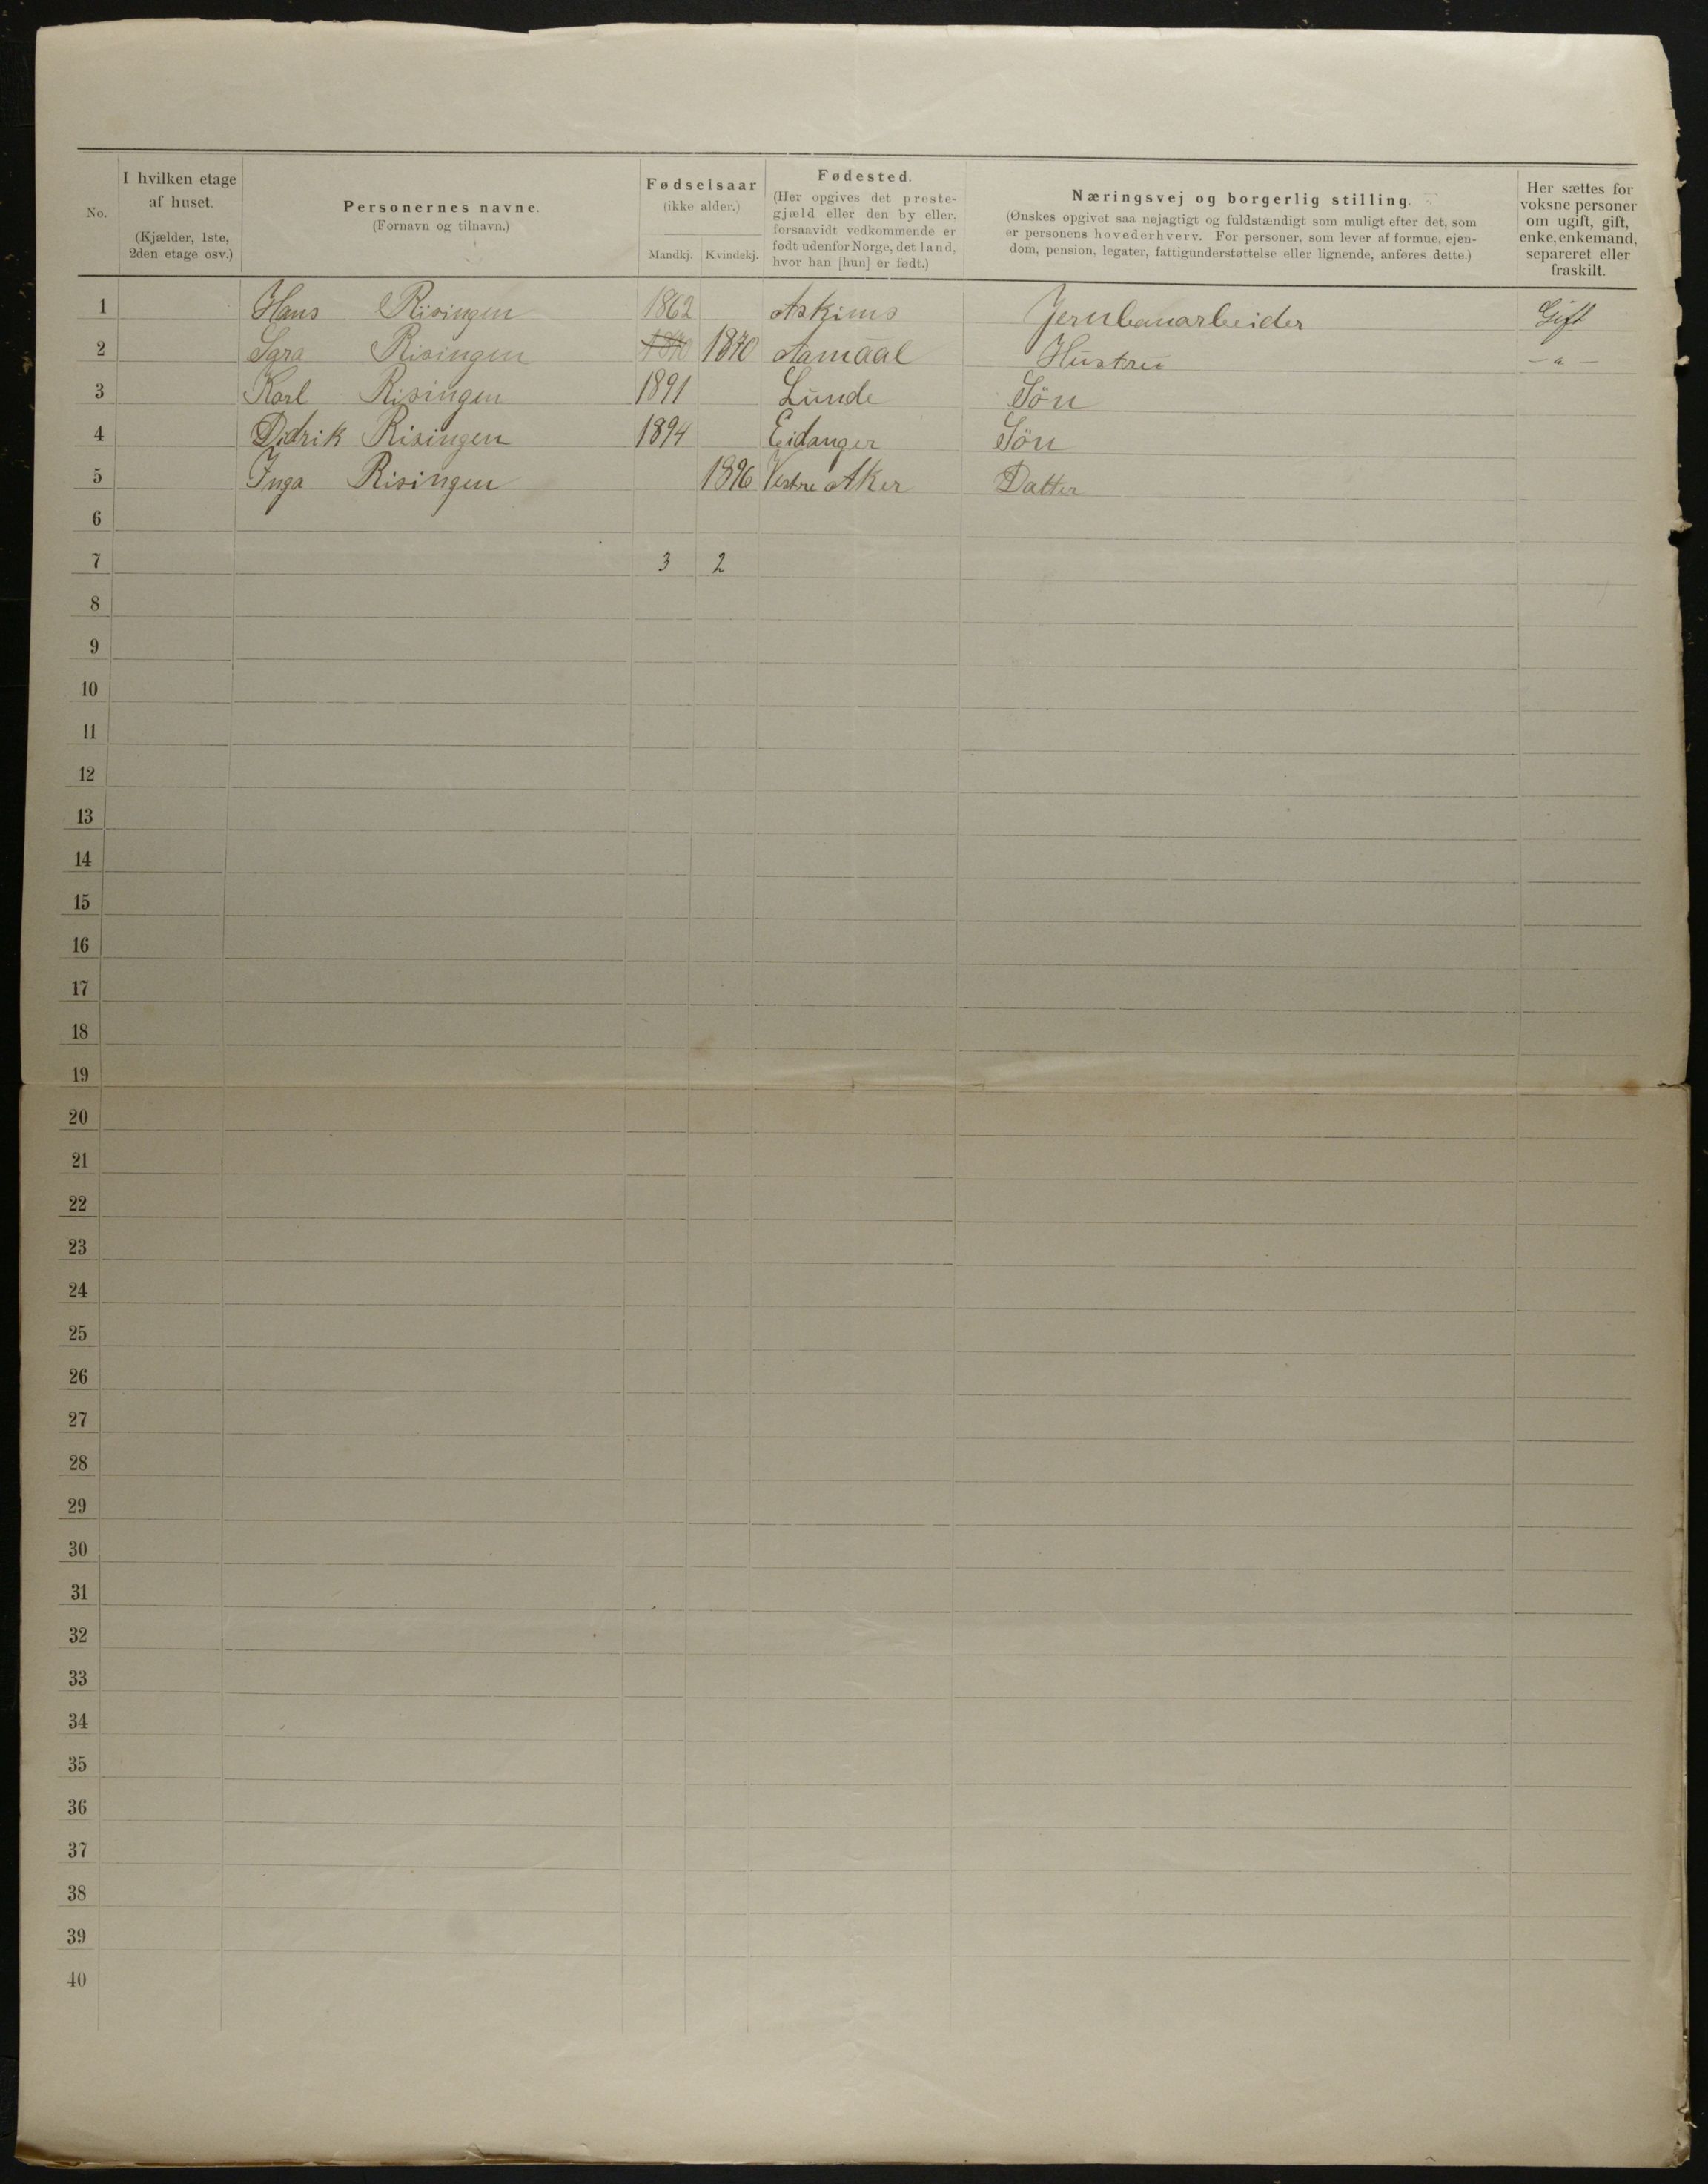 No. I hvilken etage af huset. (Kjælder, 1ste, 2den etage osv.) Personernes navne. (Fornavn og tilnavn.) Fødselsaar (ikke alder.) Mandkj. Kvindekj. Fødested. (Her opgives det prestegjæld eller den by eller, forsaavidt vedkommende er født udenfor Norge, det land, hvor han [hun] er født.) Næringsvej og borgerlig stilling. (Ønskes opgivet saa nøjagtigt og fuldstændigt som muligt efter det, som er personens hovederhverv. For personer, som lever af formue, ejendom, pension, legater, fattigunderstøttelse eller lignende, anføres dette.) Her sættes for voksne personer om ugift, gift, enke, enkemand, separeret eller fraskilt.
1 Hans Risingen 1862 Askims Jernbanarbeider Gift
2 Sara Risingen 1870 1870 Aamaal Hustru - " -
3 Karl Risingen 1891 Lunde Sön
4 Didrik Risingen 1894 Eidanger Sön
5 Inga Risingen 1896 Vestre Aker Datter
6
7 3 2
8
9
10
11
12
13
14
15
16
17
18
19
20
21
22
23
24
25
26
27
28
29
30
31
32
33
34
35
36
37
38
39
40